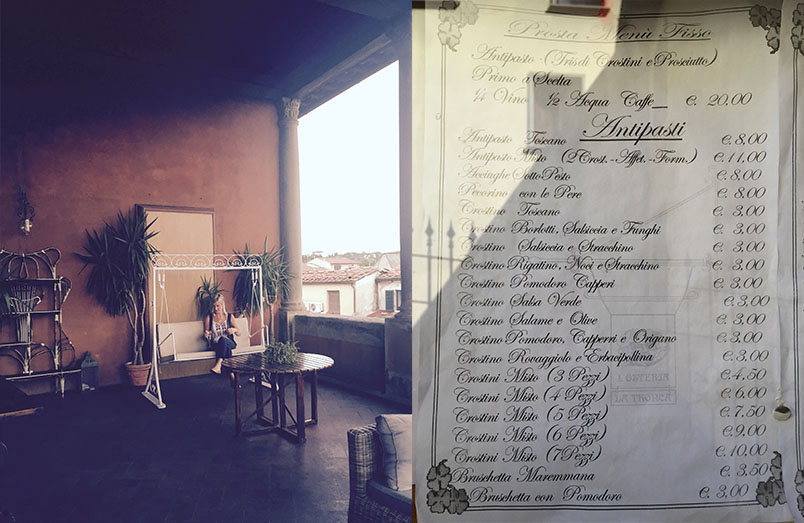 Prosta Menù Fisso
Antipasto - (Tris di Crostini e Prosciutto)
Primo a Scelta
¼ Vino ½ Acqua Caffe_ €. 20.00
Antipasti
Antipasto Toscano €. 8,00
Antipasto Misto (2 Crost.-Affet.-Form.) €. 11,00
Acciughe Sotto Pesto €. 8,00
Pecorino con le Pere €. 8,00
Crostino Toscano €. 3,00
Crostino Borlotti, Salsiccia e Funghi €. 3,00
Crostino Salsiccia e Stracchino €. 3,00
Crostino Rigatino, Noci e Stracchino €. 3,00
Crostino Pomodoro Capperi €. 3,00
Crostino Salsa Verde €. 3,00
Crostino Salame e Olive €. 3,00
Crostino Pomodoro, Capperri e Origano €. 3,00
Crostino Rovaggiolo e Erbacipollina €. 3,00
Crostini Misto (3 Pezzi) €. 4,50
Crostini Misto (4 Pezzi) €. 6,00
Crostini Misto (5 Pezzi) €. 7,50
Crostini Misto (6 Pezzi) €. 9,00
Crostini Misto (7 Pezzi) €. 10,00
Bruschetta Maremmana €. 3,50
Bruschetta con Pomodoro €. 3,00
L'OSTERIA
LA TRONCA